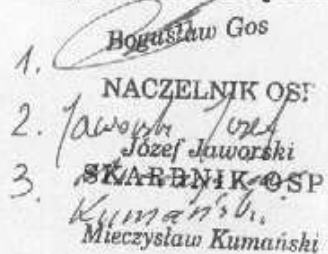 1.
Bogusław Gos
NACZELNIK OSP
2. Jaworski Józef
Józef Jaworski
3. SKARBNIK OSP
Kumański
Mieczysław Kumański